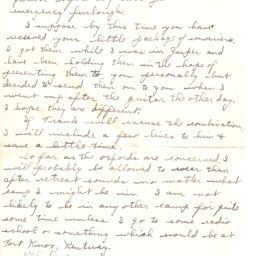 emergency furlough.
I suppose by this time you have
received your little package of souvenirs.
I got them while I was in Jasper and
have been holding them in the hope of
presenting them to you personally but
decided to send them on to you when I
went up after the guitar the other day.
I hope they are different.
If Frank will excuse the combination,
I will include a few lines to him &
save a little time.
So far as the oxfords are concerned, I
will probably be allowed to wear them
after retreat sounds no matter what
camp I might be in. I am not
likely to be in any other camp for quite
some time unless I go to some radio
school or something which would be at
Fort Knox, Kentucky.